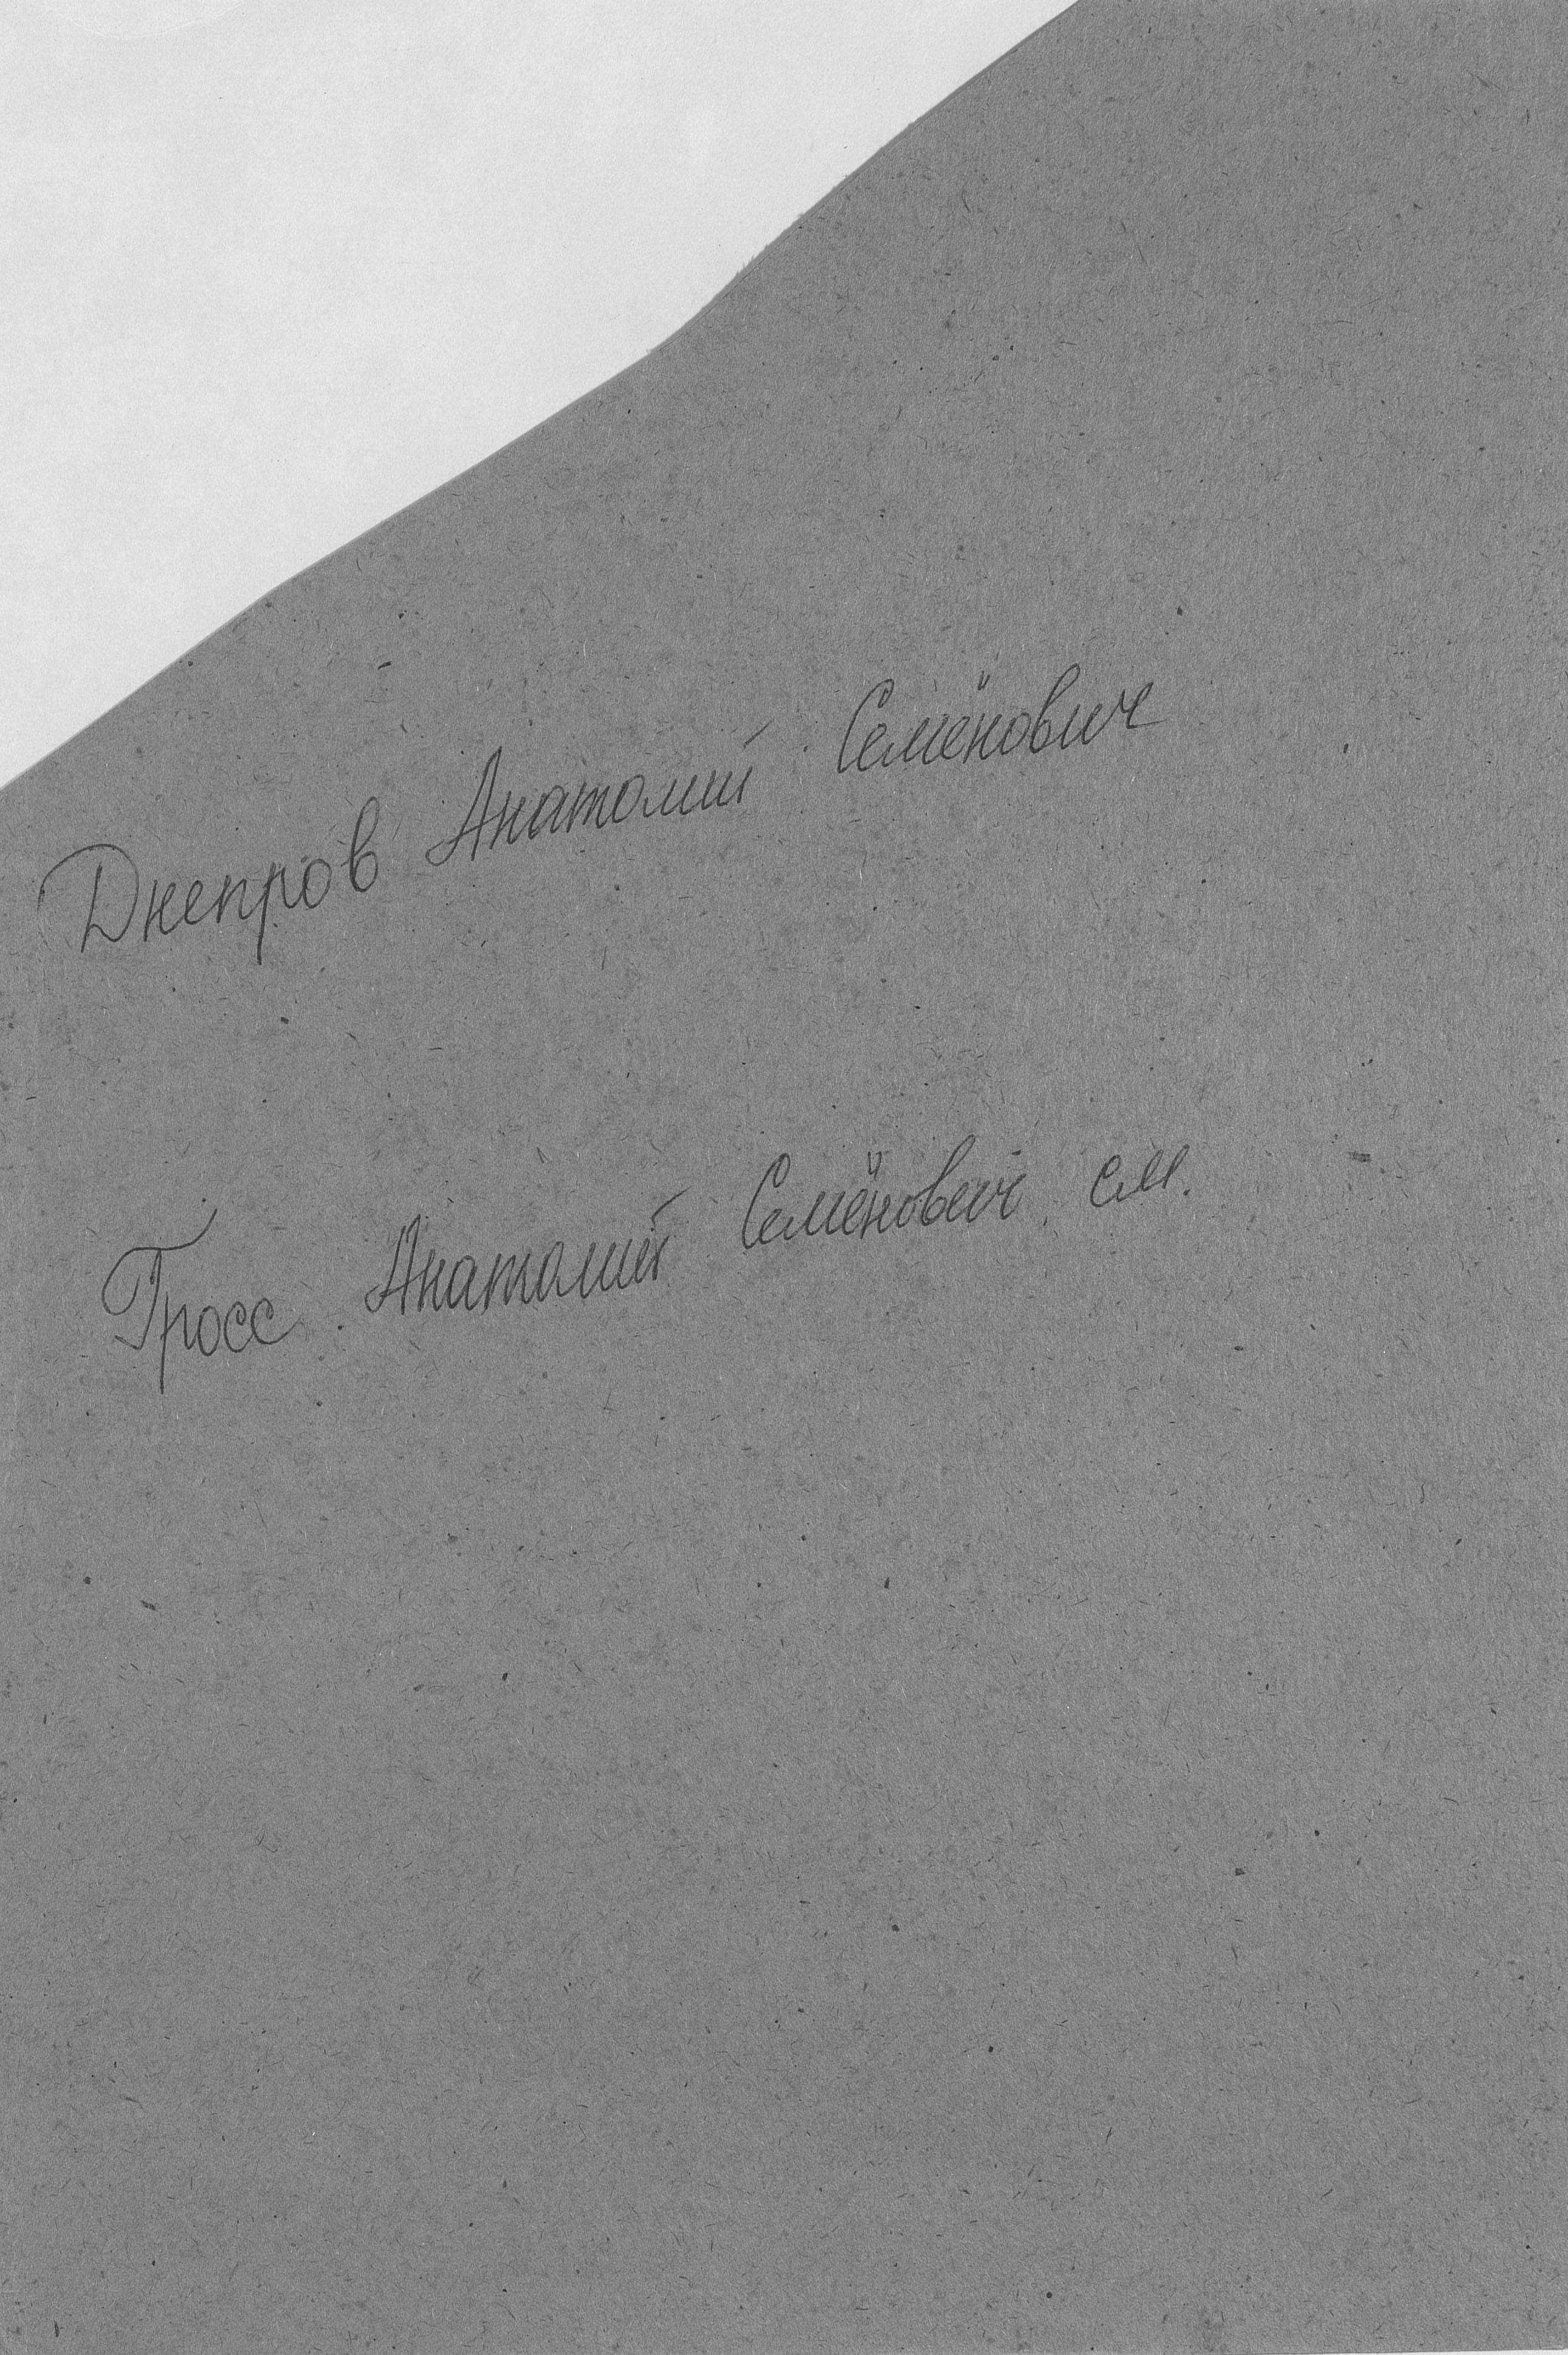 Днепров Анатолий Семёнович
Гросс Анатолий Семёнович см.